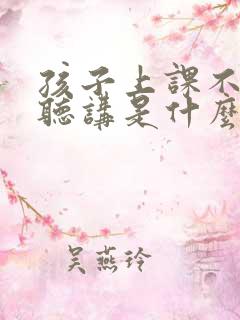 孩子上課不
聽講是什麼
吴燕玲